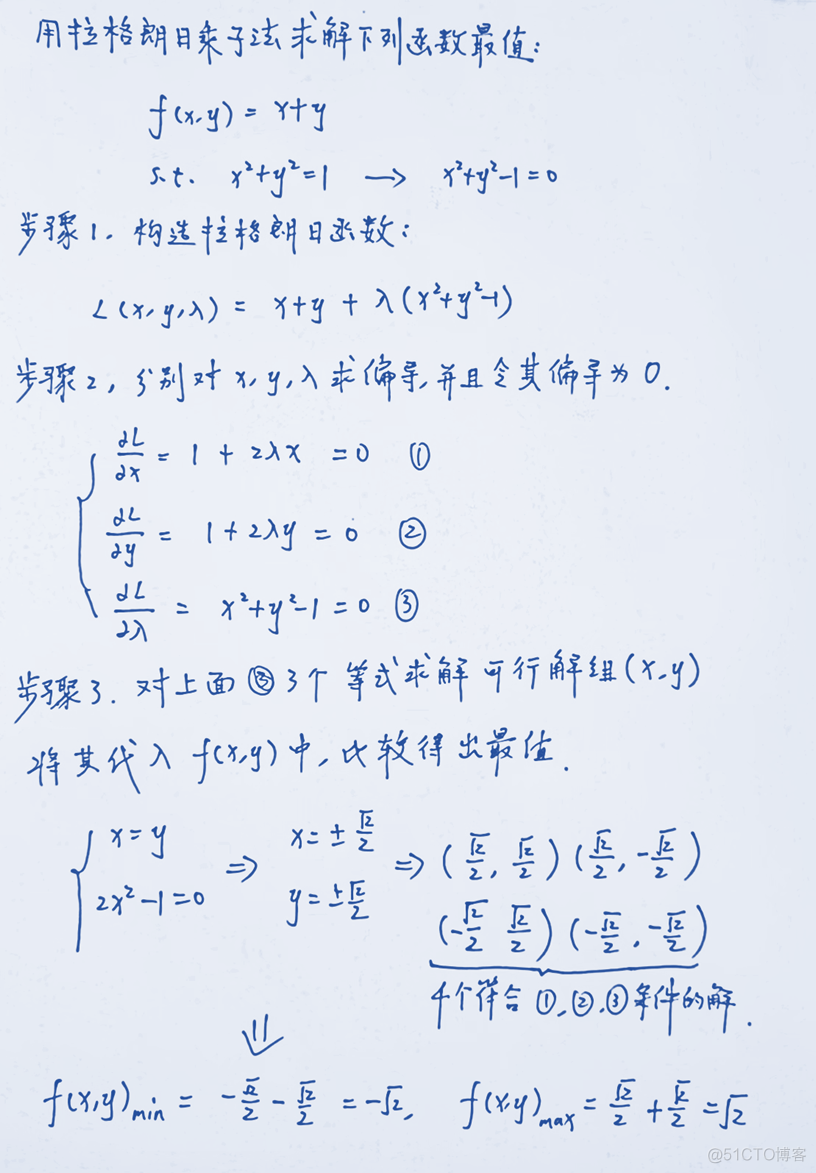 用拉格朗日乘子法求解下列函数最值:
f(x,y) = x+y
s.t. x²+y²=1 → x²+y²-1=0
步骤1. 构造拉格朗日函数:
L(x,y,λ) = x+y + λ(x²+y²-1)
步骤2, 分别对x,y,λ求偏导,并且令其偏导为0.
∂L/∂x = 1 + 2λx = 0 ①
∂L/∂y = 1+2λy = 0 ②
∂L/∂λ = x²+y²-1=0 ③
步骤3. 对上面③3个等式求解可行解组(x,y)
将其代入 f(x,y)中,比较得出最值.
x=y ⇒ x=±√2/2 ⇒ (√2/2, √2/2) (√2/2, -√2/2)
2x²-1=0 y=±√2/2 (-√2/2 √2/2) (-√2/2, -√2/2)
4个符合①,②,③条件的解.
⇓
f(x,y)min = -√2/2 - √2/2 = -√2, f(x,y)max = √2/2 + √2/2 = √2
@51CTO博客